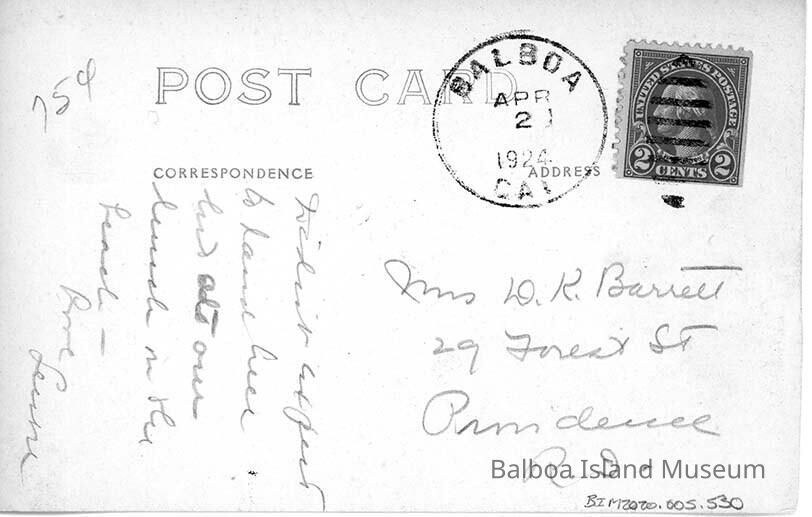 75¢
POST CARD
BALBOA
APR
21
1924
CAL
UNITED STATES POSTAGE
2 CENTS 2
CORRESPONDENCE
ADDRESS
Didn't expect
to land here
had
our
lunch on the
beach –
Love
Mrs D. K. Barrett
29 Forest St
Providence
R. I.
Balboa Island Museum
BIM2020.005.530